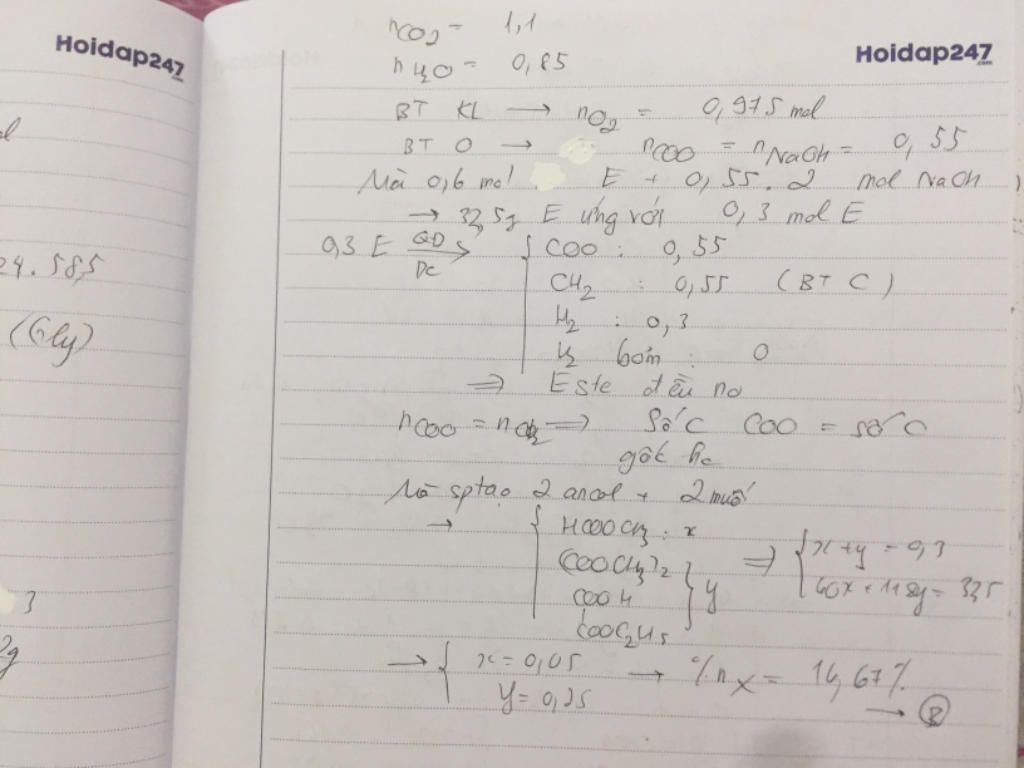 Hoidap247
.com
l
24.585
(Gly)
3
2g
Hoidap247
.com
nCO2 = 1,1
nH2O = 0,85
BT KL → nO2 = 0,975 mol
BT O → nCOO = nNaOH = 0,55
Mà 0,6 mol E + 0,55.2 mol NaOH
→ 32,5g E ứng với 0,3 mol E
0,3 E QĐ ĐC → { COO : 0,55
CH2 : 0,55 (BT C)
H2 : 0,3
H2 bơm : 0
⇒ Este đều no
nCOO = nCH2 ⇒ Số C COO = số C
gốc hc
Mà sp tạo 2 ancol + 2 muối
→ { HCOOCH3 : x
(COOCH3)2
COOH
COOC2H5
} y
⇒ { x + y = 0,3
60x + 118y = 32,5
→ { x = 0,05
y = 0,25
→ %nX = 14,67%
→ B